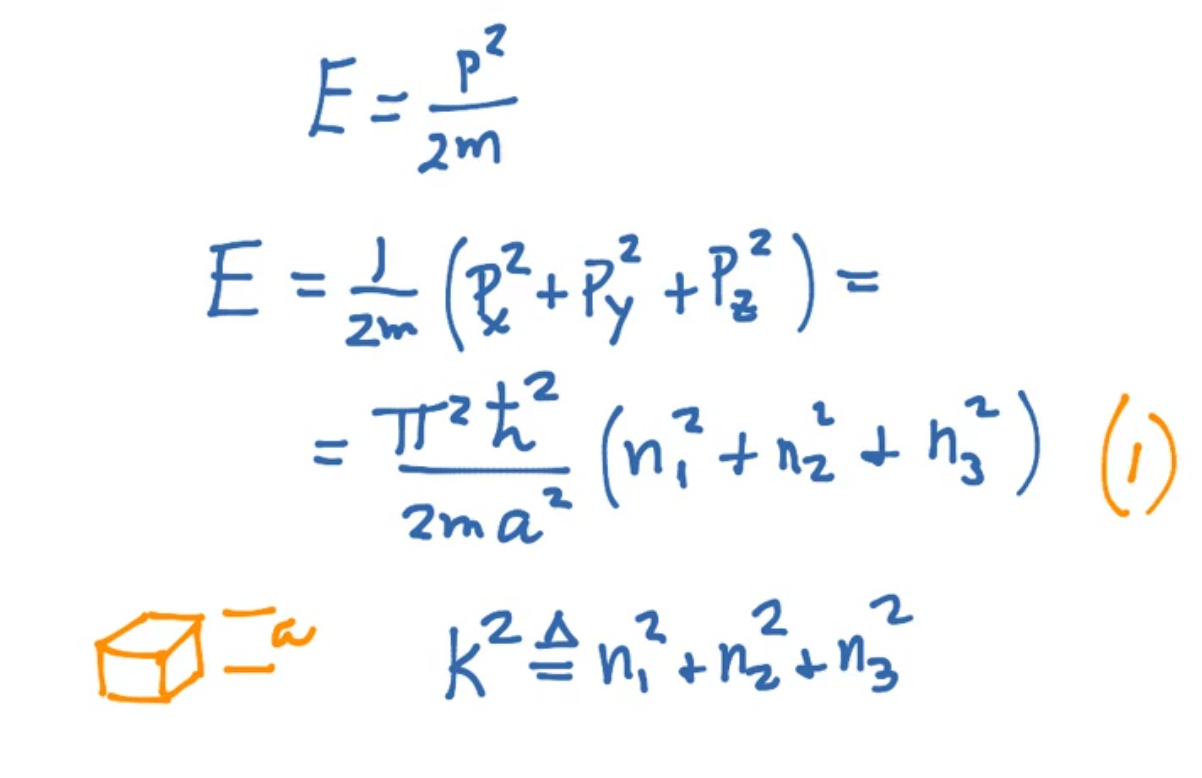 E = p²/2m
E = 1/2m (pₓ² + p_y² + p_z²) =
= π²ħ²/2ma² (n₁² + n₂² + n₃²) (1)
a
k² ≜ n₁² + n₂² + n₃²